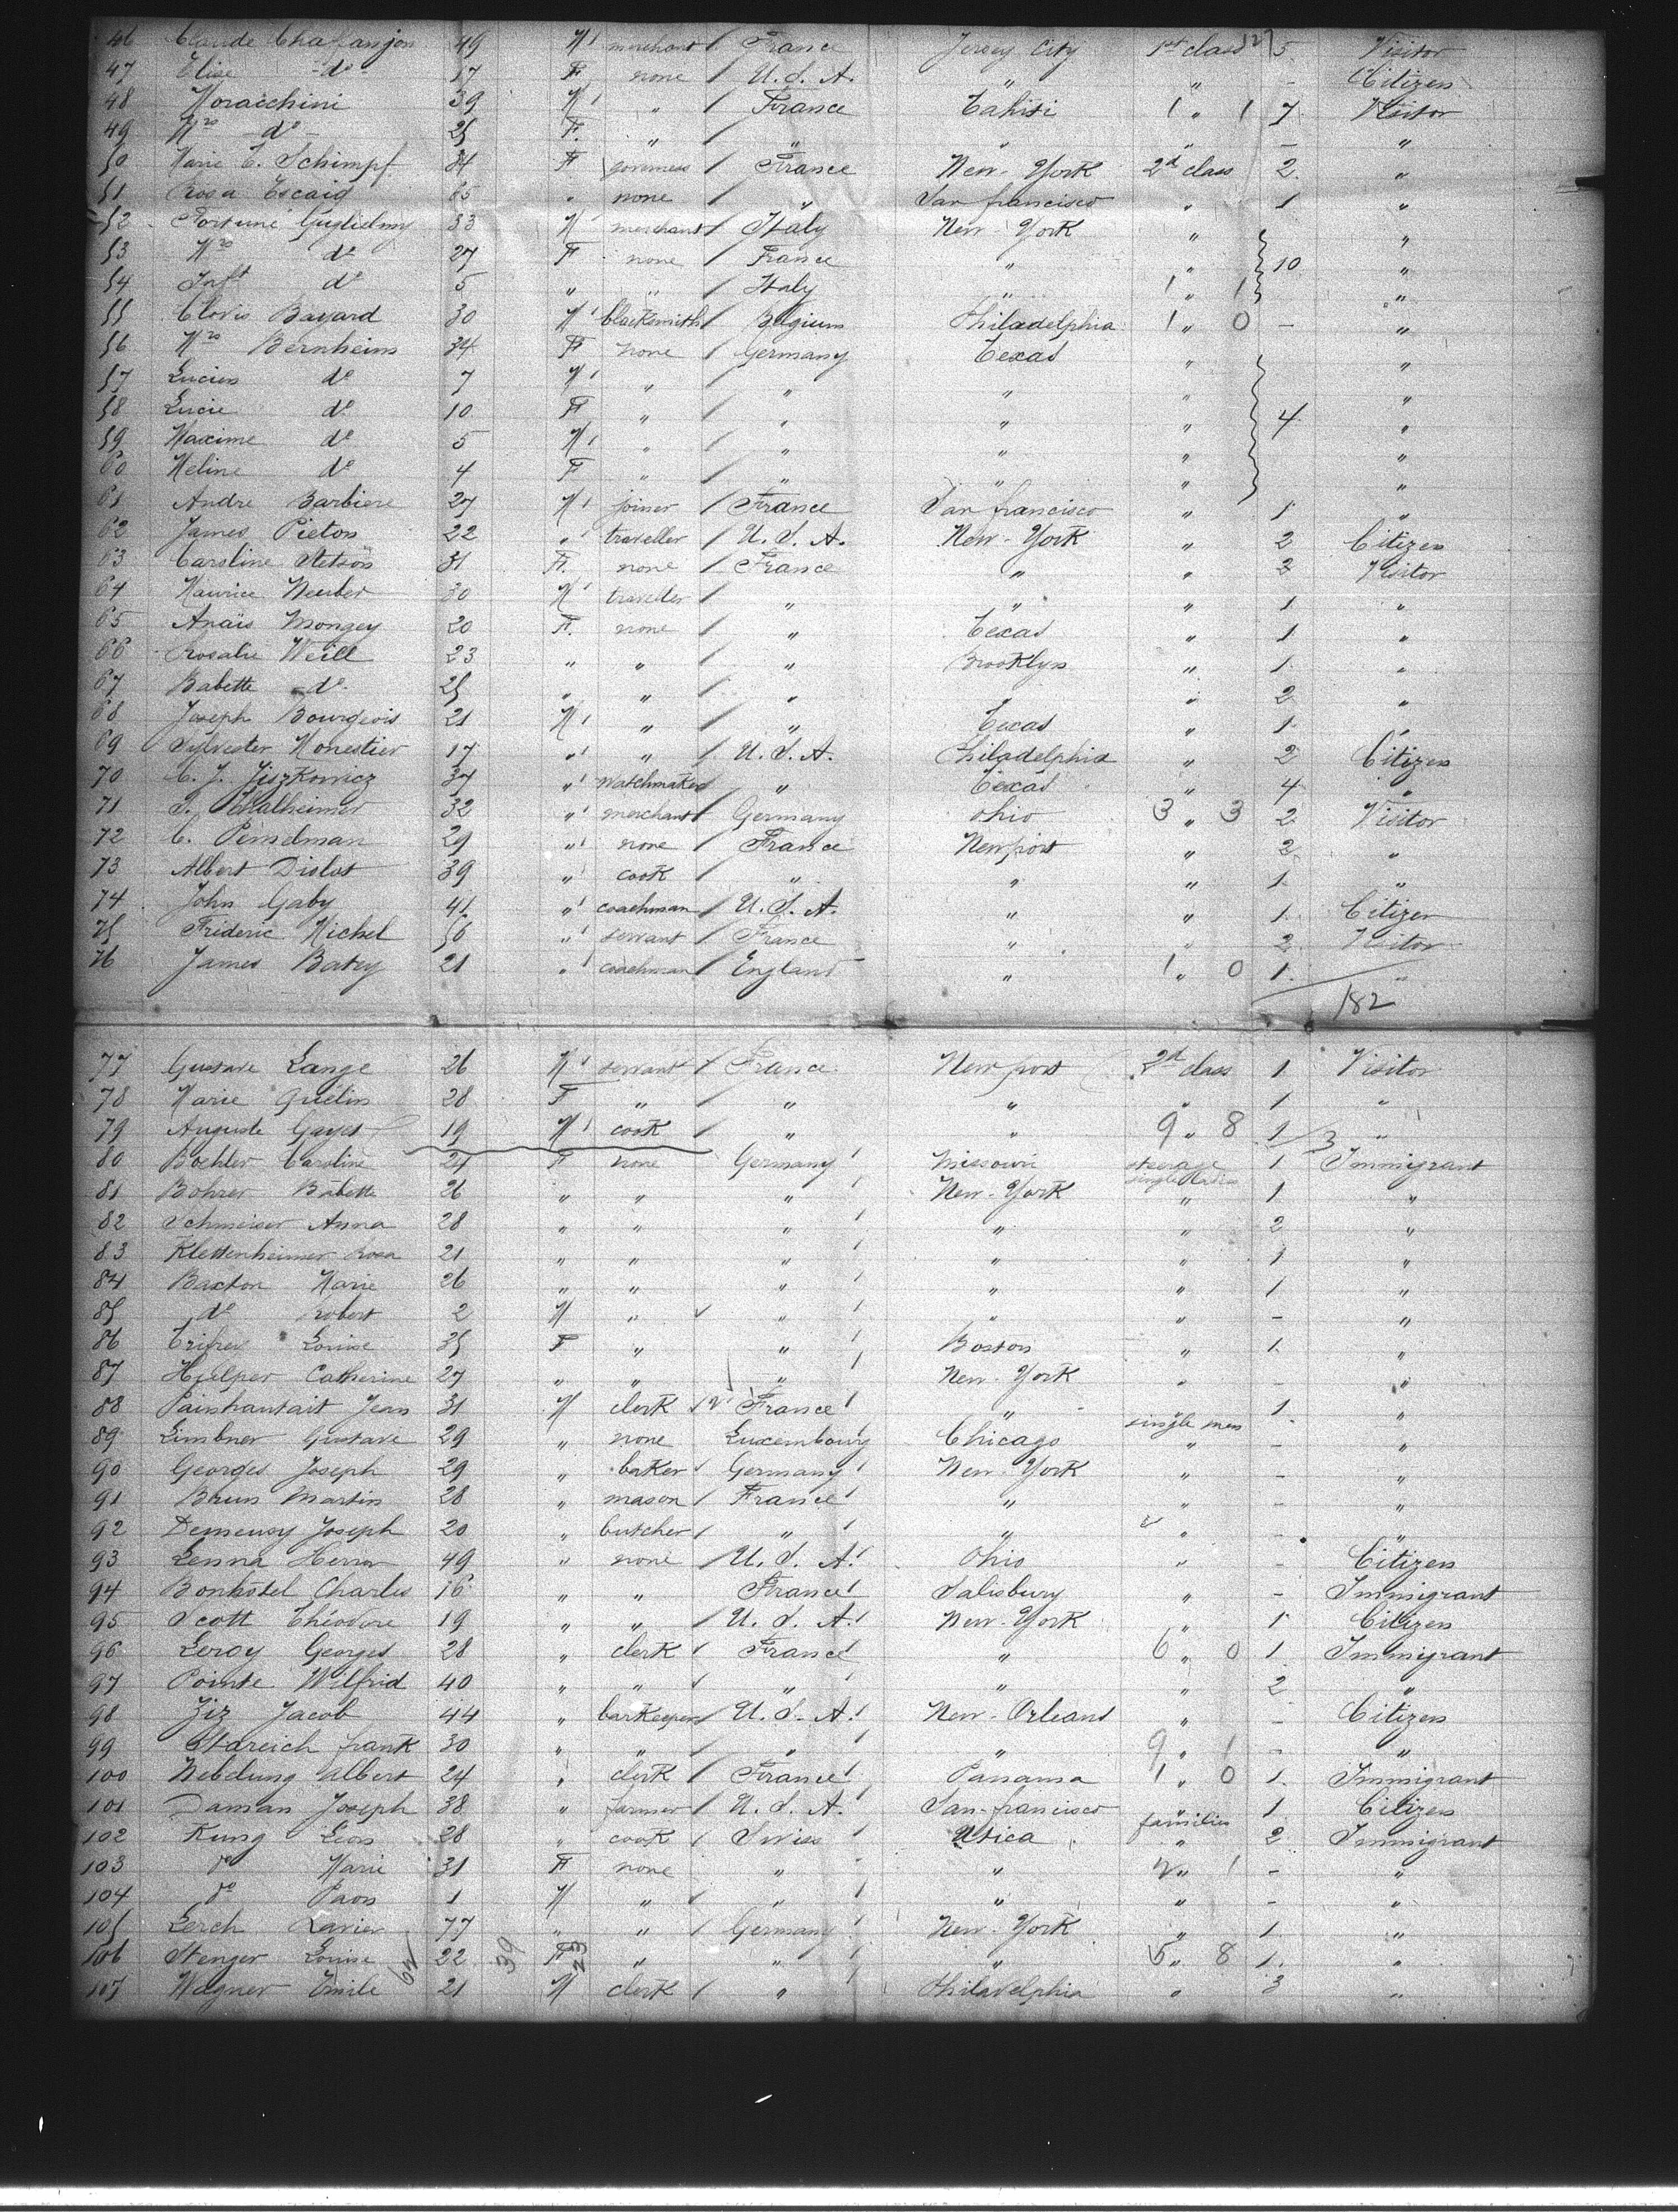 46 Claude Chafanjon 49 M merchant France Jersey City 1st class 127 5 Visitor
47 Elise do 17 F none U.S.A. " " - Citizen
48 Moracchini 39 M " France Tahiti 1 " 1 7 Visitor
49 Mrs do 25 F. " " " " - "
50 Marie E. Schimpf 34 F governess France New-York 2d class 2 "
51 Rosa Escaig 35 " none " San francisco " 1 "
52 Fortuné Guglielmy 33 M merchant Italy New York " "
53 Mrs do 27 F none France " " 10 "
54 Inft do 5 " " Italy " 1 " 1 "
55 Clovis Bayard 30 M blacksmith Belgium Philadelphia 1 " 0 - "
56 Mrs Bernheim 34 F none Germany Texas " "
57 Lucien do 7 M " " " " "
58 Lucie do 10 F " " " " 4 "
59 Maxime do 5 M " " " " "
60 Meline do 4 F " " " " "
61 Andre Barbiere 27 M joiner France San francisco " 1 "
62 James Pieton 22 " traveller U.S.A. New-York " 2 Citizen
63 Caroline Stetson 31 F. none France " " 2 Visitor
64 Maurice Neuber 30 M traveller " " " 1 "
65 Anaïs Mongey 20 F. none " Texas " 1 "
66 Rosalie Weill 23 " " " Brooklyn " 1 "
67 Babette do 25 " " " " 2 "
68 Joseph Bourgeois 21 M " " Texas " 1 "
69 Sylvester Monestier 17 " " U.S.A. Philadelphia " 2 Citizen
70 C. J. Jiszkowicz 37 " watchmaker " Texas " 4 "
71 S. Thalheimer 32 " merchant Germany Ohio 3 " 3 2 Visitor
72 C. Penselman 29 " none France Newport " 2 "
73 Albert Diolot 39 " cook " " " 1 "
74 John Gaby 41 " coachman U.S.A. " " 1 Citizen
75 Frideric Michel 56 " servant France " " 2 Visitor
76 James Batey 21 " coachman England " 1 " 0 1 "
182
77 Gustave Lange 26 M servant France Newport 2d class 1 Visitor
78 Marie Guélin 28 F " " " " 1 "
79 Auguste Gayet 19 M cook " " 9 " 8 1 3 "
80 Boehler Caroline 24 F none Germany Missouri steerage 1 Immigrant
81 Bohrer Babette 26 " " " New-York single ladies " 1 "
82 Schmeiser Anna 28 " " " " " 2 "
83 Klettenheimer Rosa 21 " " " " " 1 "
84 Baxton Marie 26 " " " " " 1 "
85 do robert 2 M " " " " - "
86 Trifrer Louise 35 F " " Boston " 1 "
87 Hielper Catherine 27 " " " New-York " - "
88 Painhautait Jean 31 M clerk France " " 1 "
89 Limbner Gustave 29 " none Luxembourg Chicago single men " - "
90 Georges Joseph 29 " baker Germany New-York " - "
91 Brun Martin 28 " mason France " " - "
92 Demeusy Joseph 20 " butcher " " " - "
93 Lenna Herra 49 " none U.S.A. Ohio " - Citizen
94 Bonhotel Charles 16 " " France Salisbury " - Immigrant
95 Scott Théodore 19 " " U.S.A. New-York " 1 Citizen
96 Leroy Georges 28 " clerk France " 6 " 0 1 Immigrant
97 Pointe Wilfrid 40 " " " " " 2 "
98 Ziz Jacob 44 " barkeeper U.S.A. New-Orleans " - Citizen
99 Stareich frank 30 " " " " 9 " 1 - "
100 Nebdung Albert 24 " clerk France Panama 1 " 0 1 Immigrant
101 Daman Joseph 38 " farmer U.S.A. San-francisco " 1 Citizen
102 Kung Leon 28 " cook Swiss Utica families " 2 Immigrant
103 do Marie 31 F none " " 2 " 1 - "
104 do Paon 1 M " " " " - "
105 Lerch Xavier 77 " " Germany New-York " 1 "
106 Stenger Louise 22 F " " " 5 " 8 1 "
107 Wagner Emile 21 M clerk " Philadelphia " 3 "
62 39 23